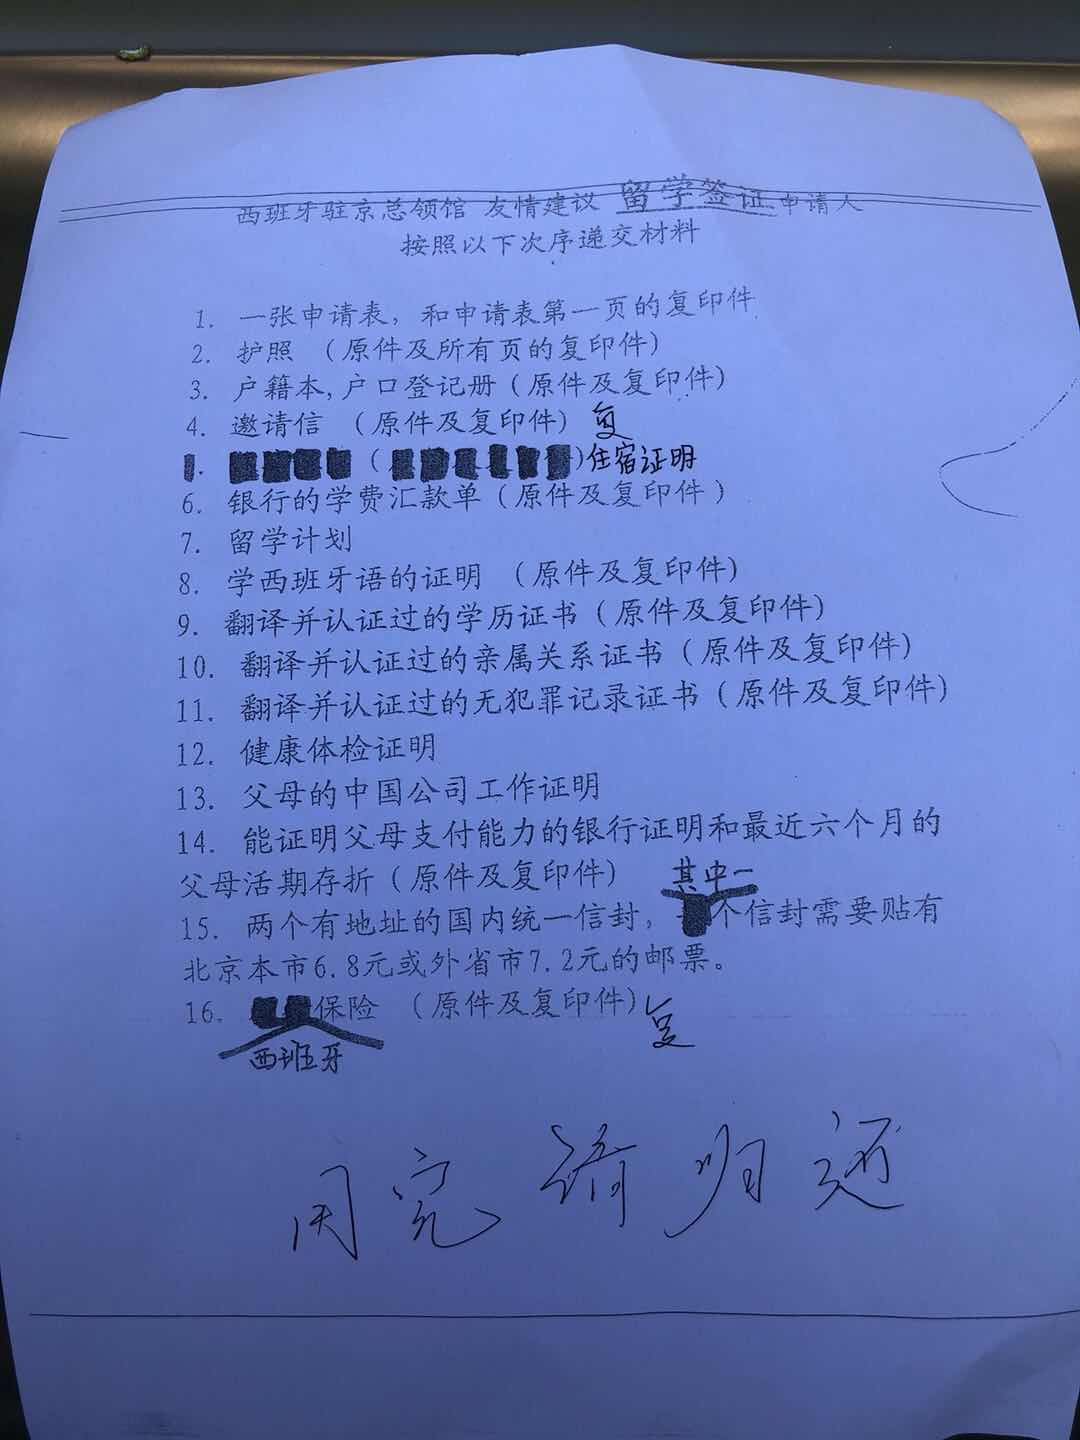 西班牙驻京总领馆 友情建议 留学签证申请人
按照以下次序递交材料
1. 一张申请表，和申请表第一页的复印件
2. 护照 （原件及所有页的复印件）
3. 户籍本,户口登记册（原件及复印件）
4. 邀请信 （原件及复印件） 复
（ ）住宿证明
6. 银行的学费汇款单（原件及复印件）
7. 留学计划
8. 学西班牙语的证明 （原件及复印件）
9. 翻译并认证过的学历证书（原件及复印件）
10. 翻译并认证过的亲属关系证书（原件及复印件）
11. 翻译并认证过的无犯罪记录证书（原件及复印件）
12. 健康体检证明
13. 父母的中国公司工作证明
14. 能证明父母支付能力的银行证明和最近六个月的
父母活期存折（原件及复印件）
其中一
15. 两个有地址的国内统一信封，个信封需要贴有
北京本市6.8元或外省市7.2元的邮票。
16. 保险 （原件及复印件） 复
西班牙
用完请归还